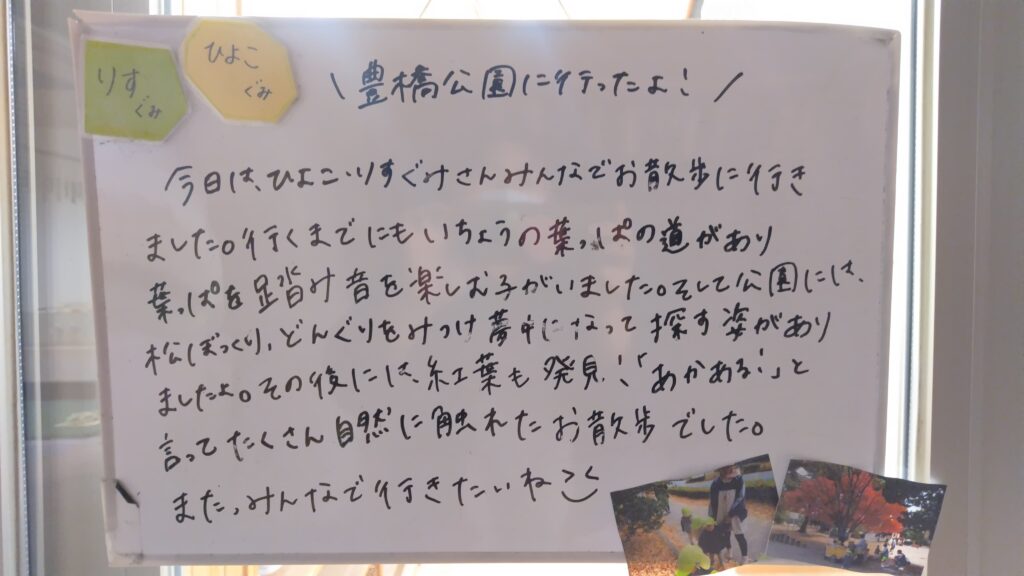 りす
ぐみ
ひよこ
ぐみ
\ 豊橋公園に行ったよ! /
今日は、ひよこ・りすぐみさんみんなでお散歩に行き
ました。行くまでにもいちょうの葉っぱの道があり
葉っぱを踏み音を楽しむ子がいました。そして公園には、
松ぼっくり、どんぐりをみつけ夢中になって探す姿があり
ましたよ。その後には、紅葉も発見!「あかあるい!」と
言ってたくさん自然に触れたお散歩でした。
また、みんなで行きたいね